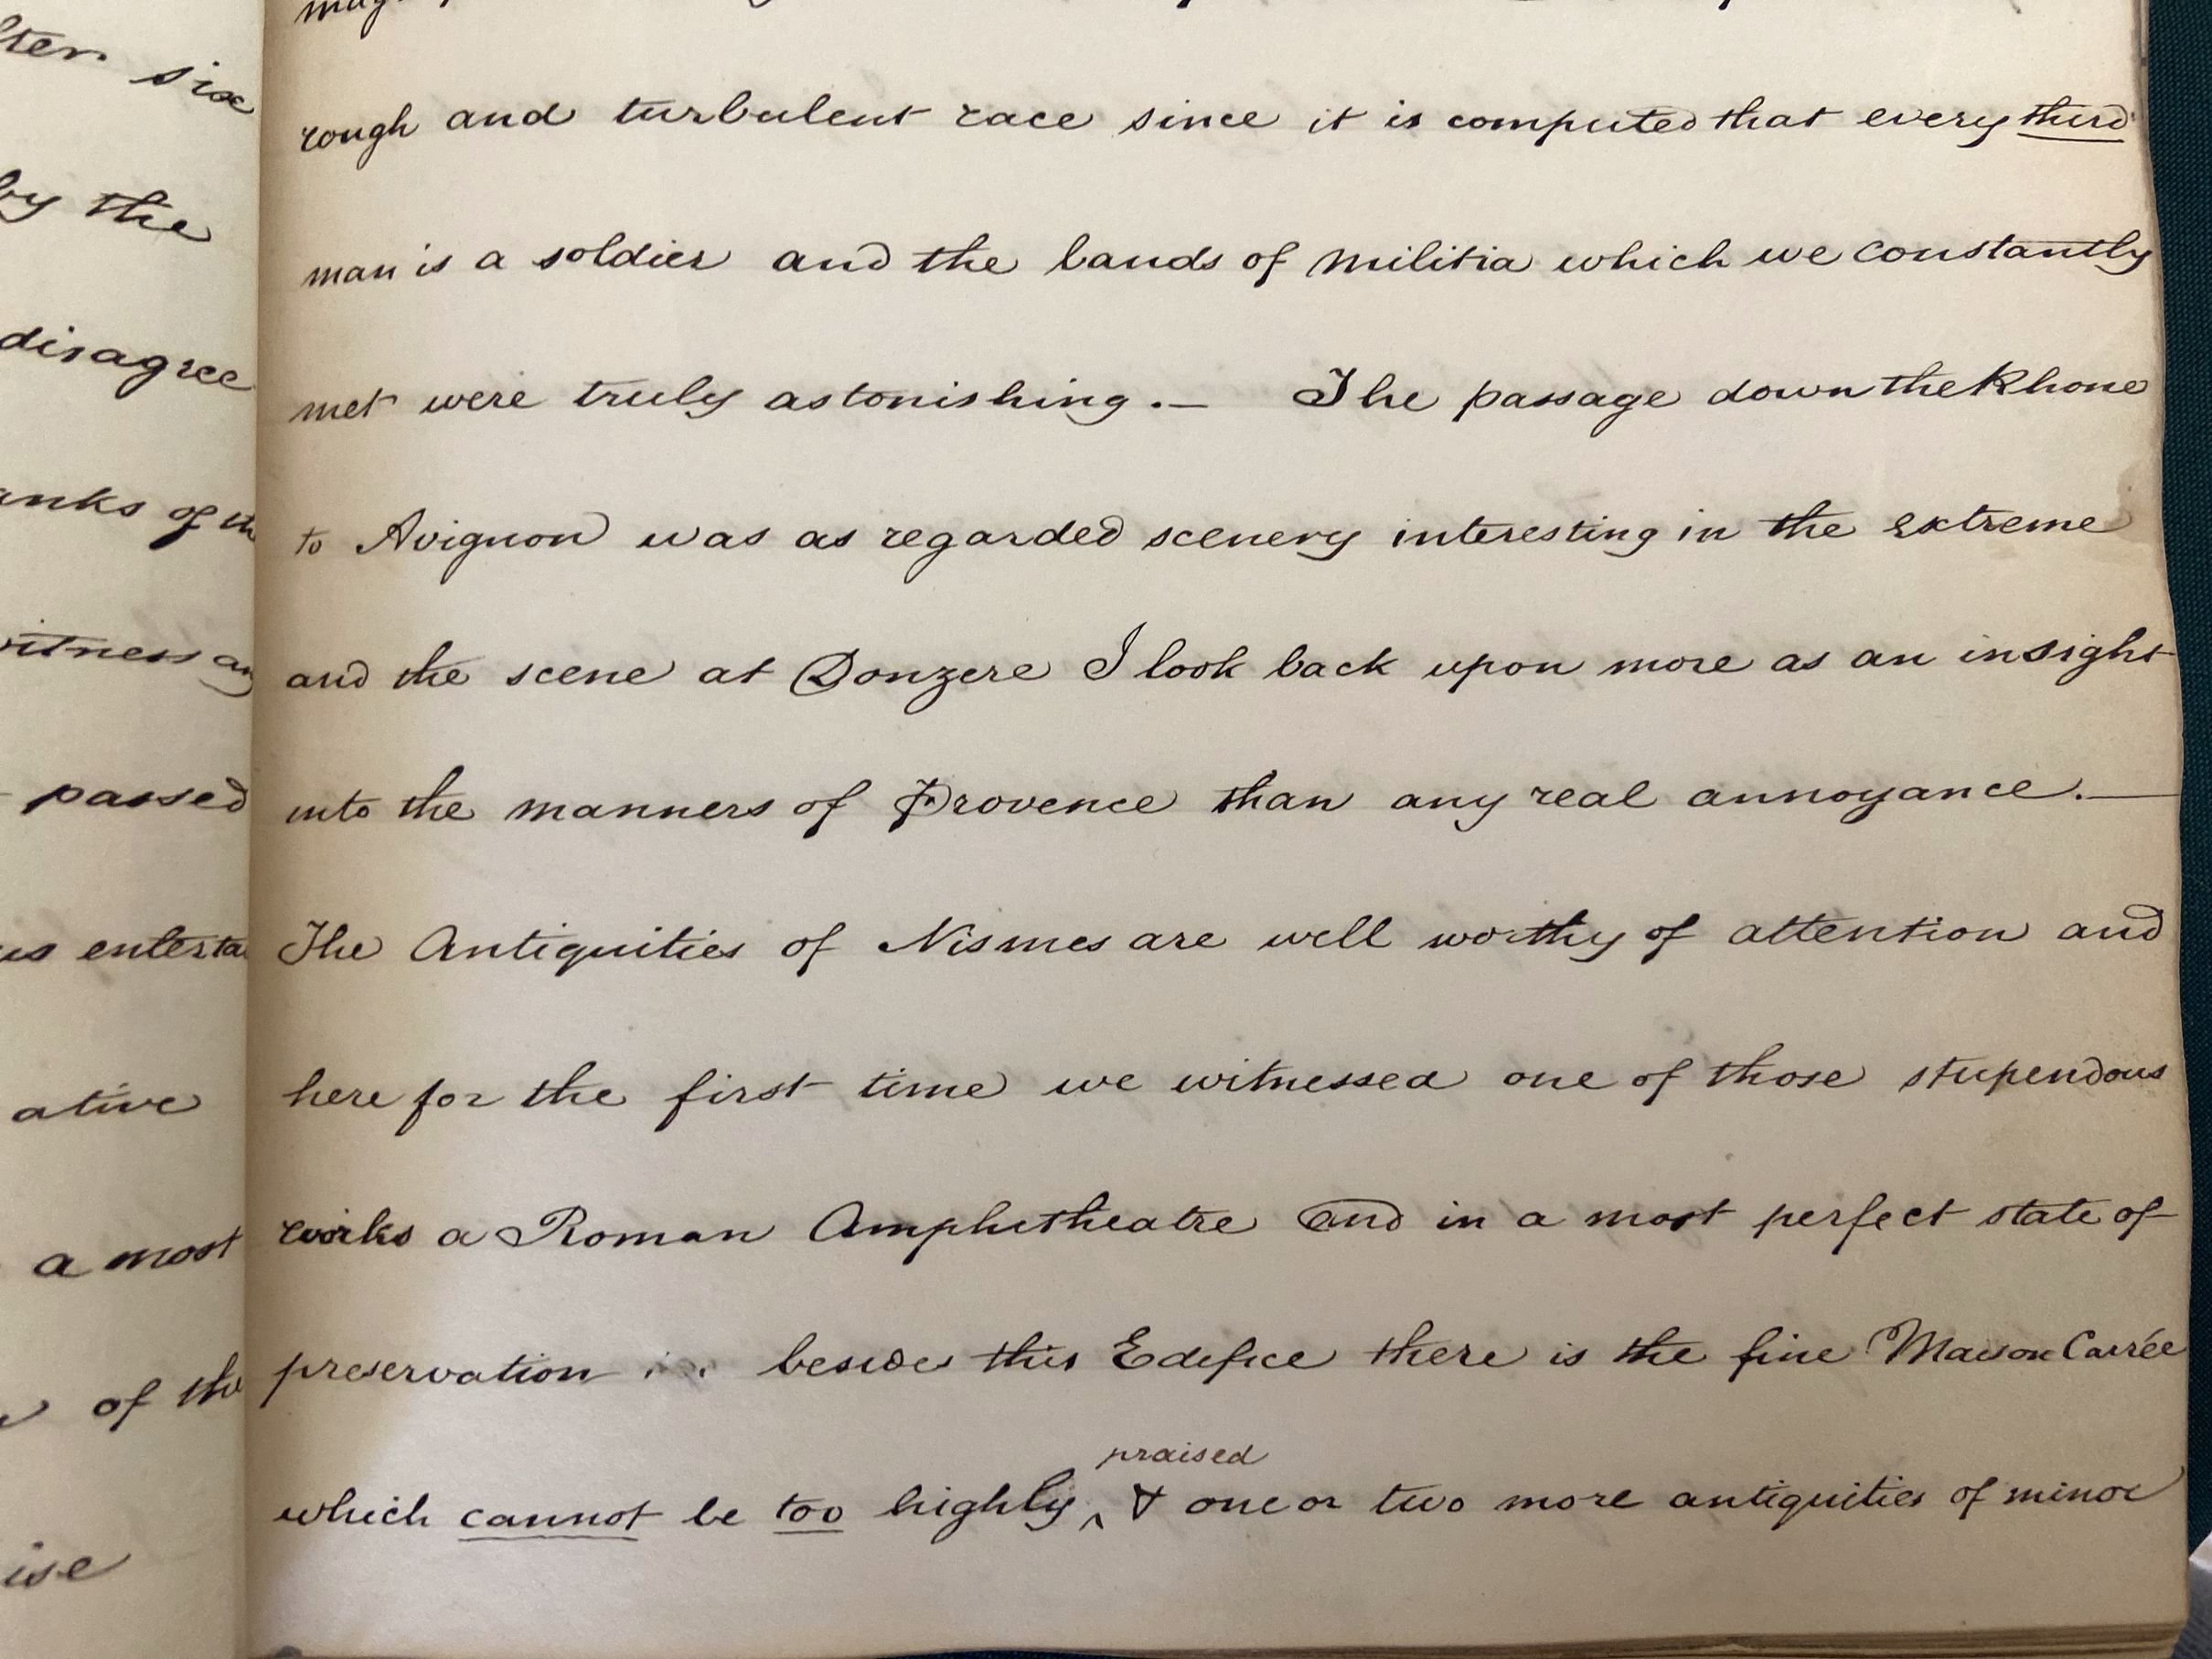 lter six
by the
disagree
anks of th
witness any
passed
us enterta
ative
a most
of the
ise
rough and turbulent race since it is computed that every third
man is a soldier and the bands of militia which we constantly
met were truly astonishing.— The passage down the Rhone
to Avignon was as regarded scenery interesting in the extreme
and the scene at Donzere I look back upon more as an insight
into the manners of Provence than any real annoyance.—
The Antiquities of Nismes are well worthy of attention and
here for the first time we witnessed one of those stupendous
works a Roman Amphitheatre and in a most perfect state of
preservation besides this Edifice there is the fine Maison Carrée
praised
which cannot be too highly ‸ & one or two more antiquities of minor